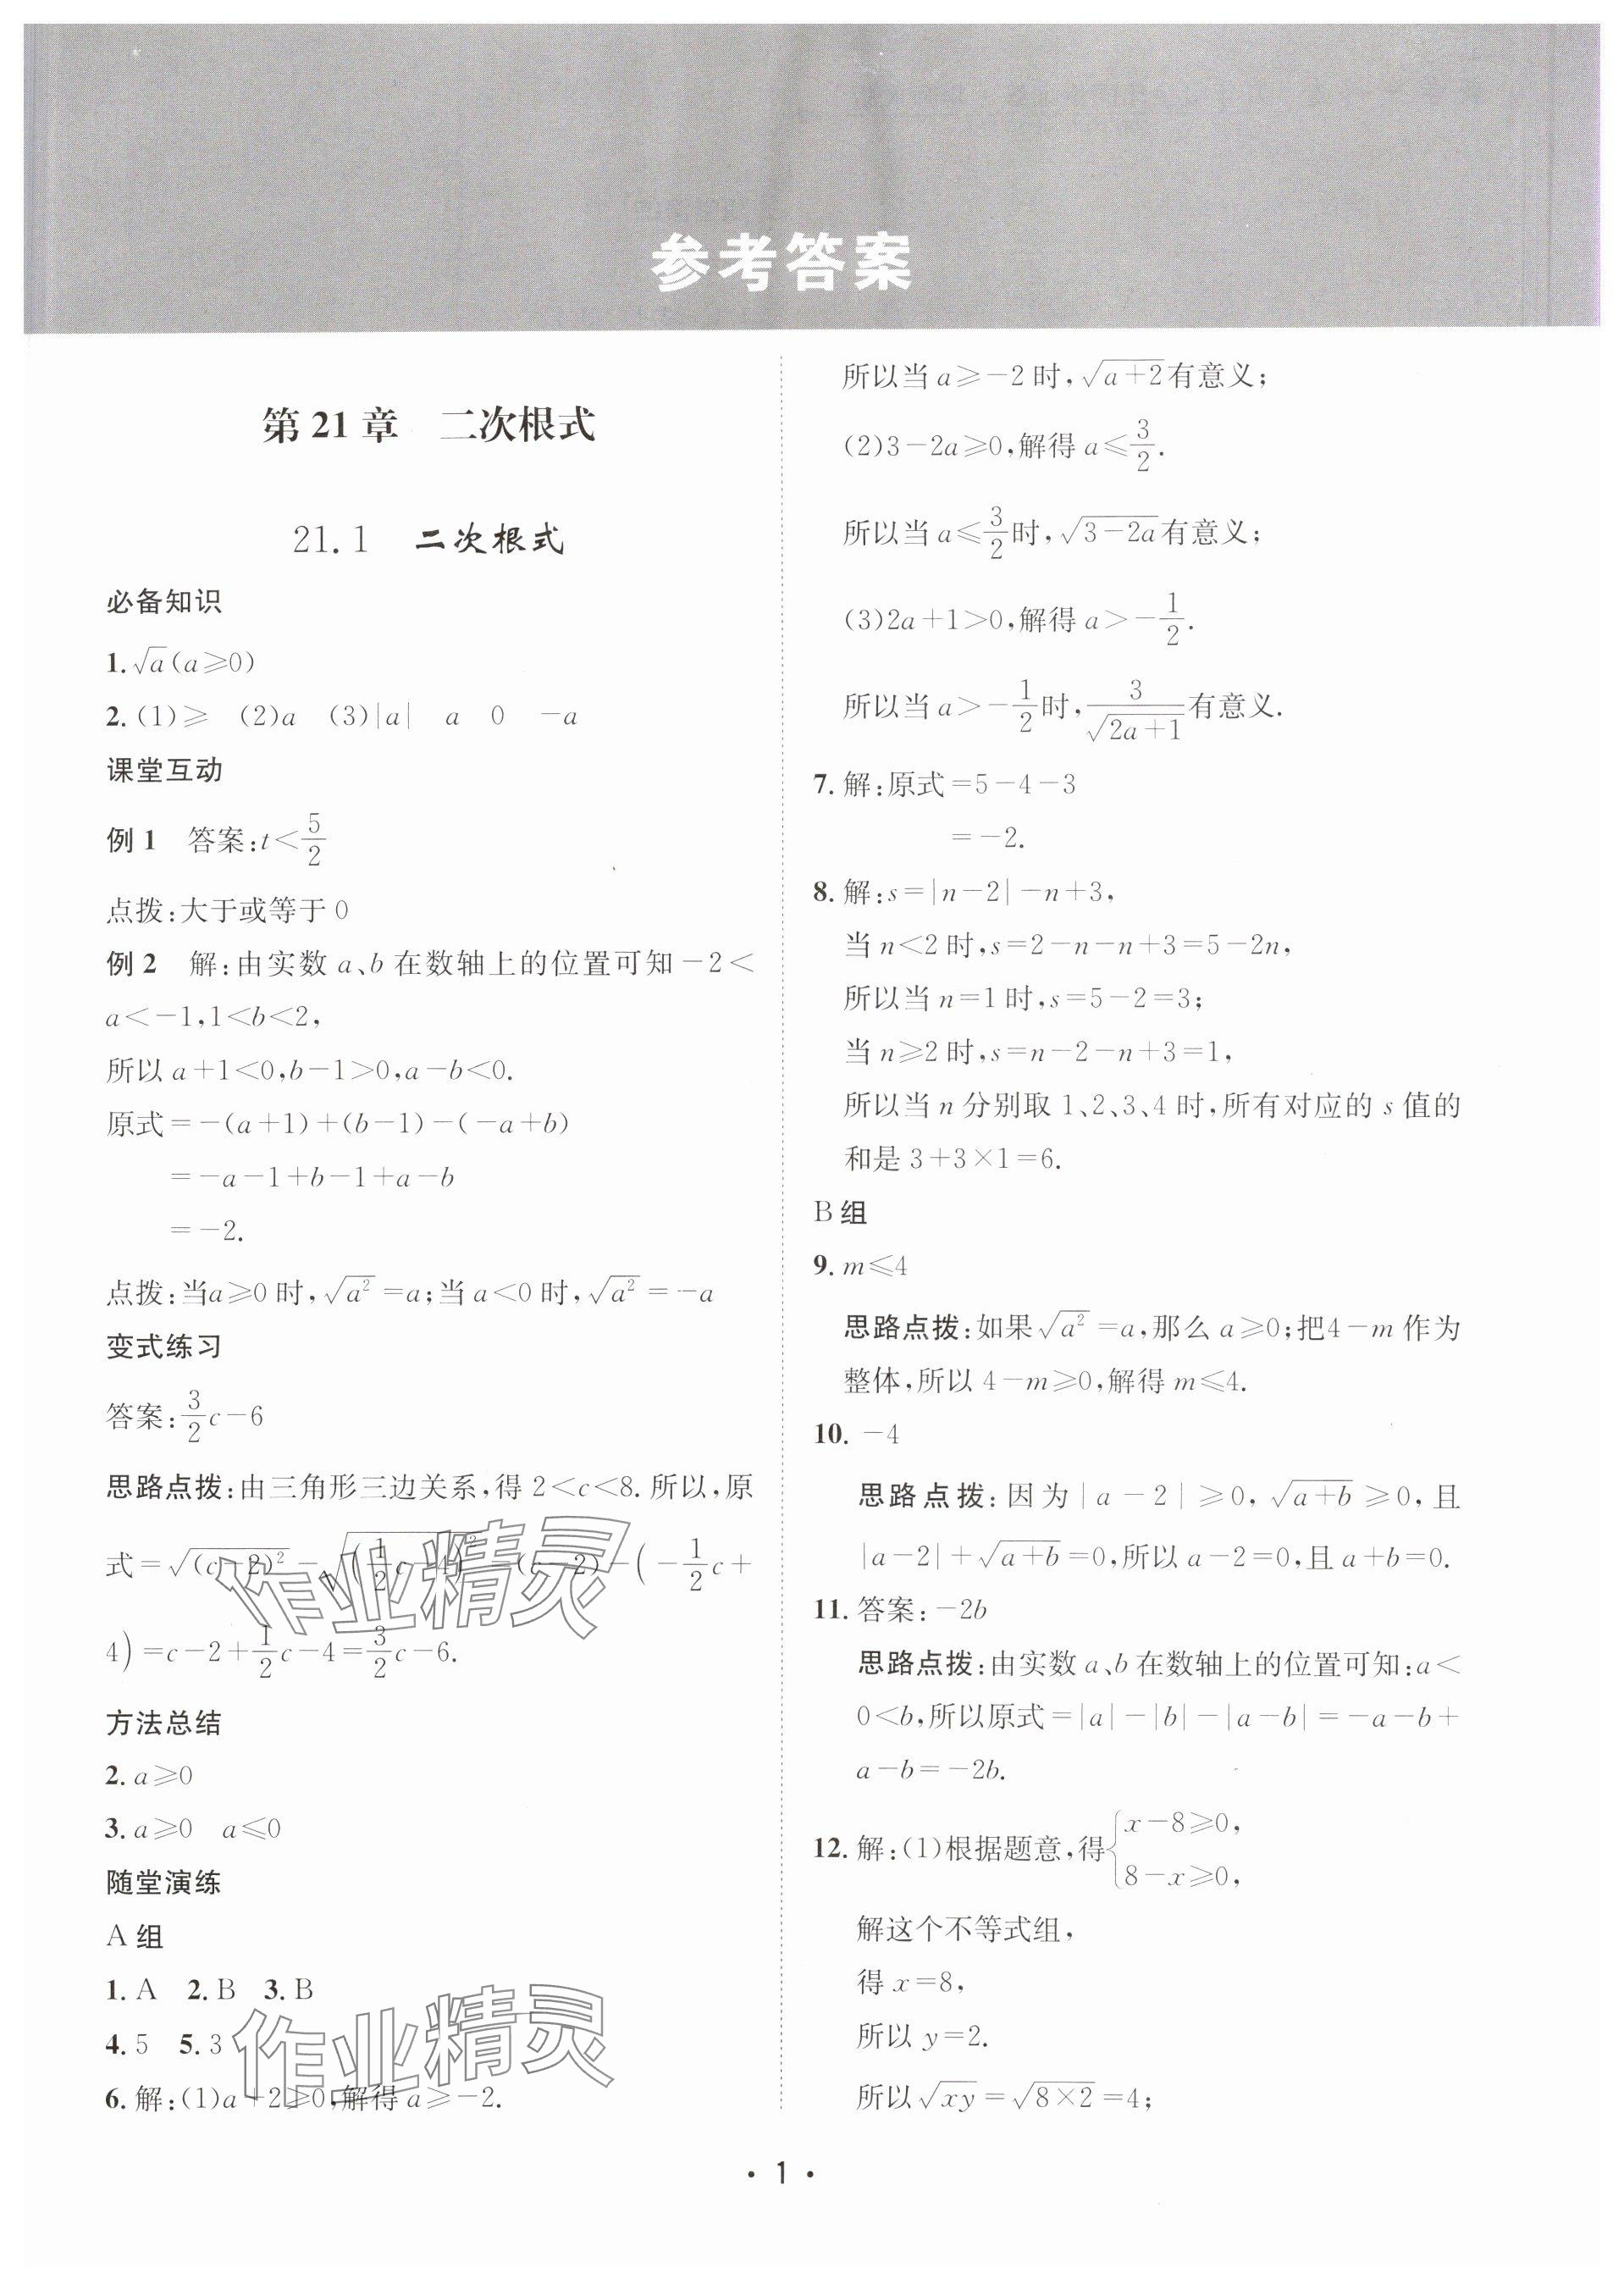 参考答案
第 21 章 二次根式
21.1 二次根式
必备知识
1. √a(a≥0)
2. (1)≥ (2)a (3)|a| a 0 -a
课堂互动
例 1 答案:t<5/2
点拨:大于或等于 0
例 2 解:由实数 a、b 在数轴上的位置可知-2<
a<-1,1<b<2,
所以 a+1<0,b-1>0,a-b<0.
原式=-(a+1)+(b-1)-(-a+b)
=-a-1+b-1+a-b
=-2.
点拨:当a≥0 时,√(a²)=a;当 a<0 时,√(a²)=-a
变式练习
答案:3/2c-6
思路点拨:由三角形三边关系,得 2<c<8.所以,原
式=√((c-2)²)-√((1/2c-4)²)=(c-2)-(-1/2c+
4)=c-2+1/2c-4=3/2c-6.
方法总结
2. a≥0
3. a≥0 a≤0
随堂演练
A 组
1. A 2. B 3. B
4. 5 5. 3
6. 解:(1)a+2≥0,解得 a≥-2.
所以当 a≥-2 时,√(a+2)有意义;
(2)3-2a≥0,解得 a≤3/2.
所以当 a≤3/2时,√(3-2a)有意义;
(3)2a+1>0,解得 a>-1/2.
所以当 a>-1/2时,3/√(2a+1)有意义.
7. 解:原式=5-4-3
=-2.
8. 解:s=|n-2|-n+3,
当 n<2 时,s=2-n-n+3=5-2n,
所以当 n=1 时,s=5-2=3;
当 n≥2 时,s=n-2-n+3=1,
所以当 n 分别取 1、2、3、4 时,所有对应的 s 值的
和是 3+3×1=6.
B 组
9. m≤4
思路点拨:如果√(a²)=a,那么 a≥0;把4-m 作为
整体,所以 4-m≥0,解得 m≤4.
10. -4
思路点拨:因为|a-2|≥0,√(a+b)≥0,且
|a-2|+√(a+b)=0,所以 a-2=0,且 a+b=0.
11. 答案:-2b
思路点拨:由实数 a、b 在数轴上的位置可知:a<
0<b,所以原式=|a|-|b|-|a-b|=-a-b+
a-b=-2b.
12. 解:(1)根据题意,得{x-8≥0,
8-x≥0,
解这个不等式组,
得 x=8,
所以 y=2.
所以√(xy)=√(8×2)=4;
作业精灵
作业精灵
· 1 ·